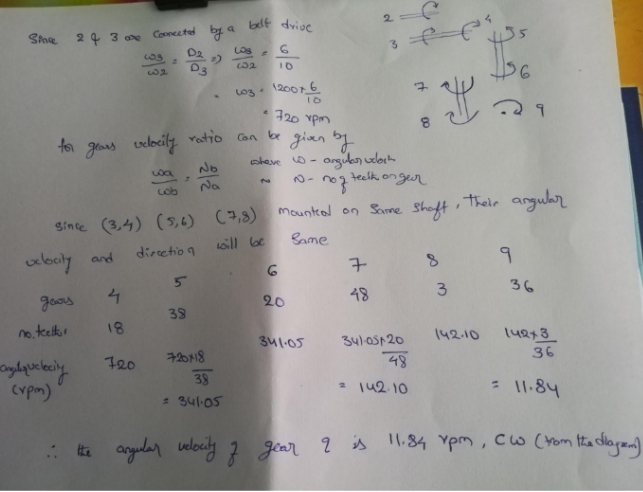 Since 2 & 3 are connected by a belt drive
ω3/ω2 = D2/D3 => ω3/ω2 = 6/10
ω3 = 1200 × 6/10
= 720 rpm
2
3
4
5
6
7
8
9
for gears velocity ratio can be given by
ωa/ωb = Nb/Na
where ω - angular veloch
N - no of teeth on gear
since (3,4) (5,6) (7,8) mounted on same shaft, their angular
velocity and direction will be same
gears 4 5 6 7 8 9
no. teeth 18 38 20 48 3 36
angular velocity (rpm) 720 720×18/38 341.05 341.05×20/48 142.10 142×3/36
= 341.05 = 142.10 = 11.84
∴ the angular velocity of gear 9 is 11.84 rpm, CW (from the diagram)